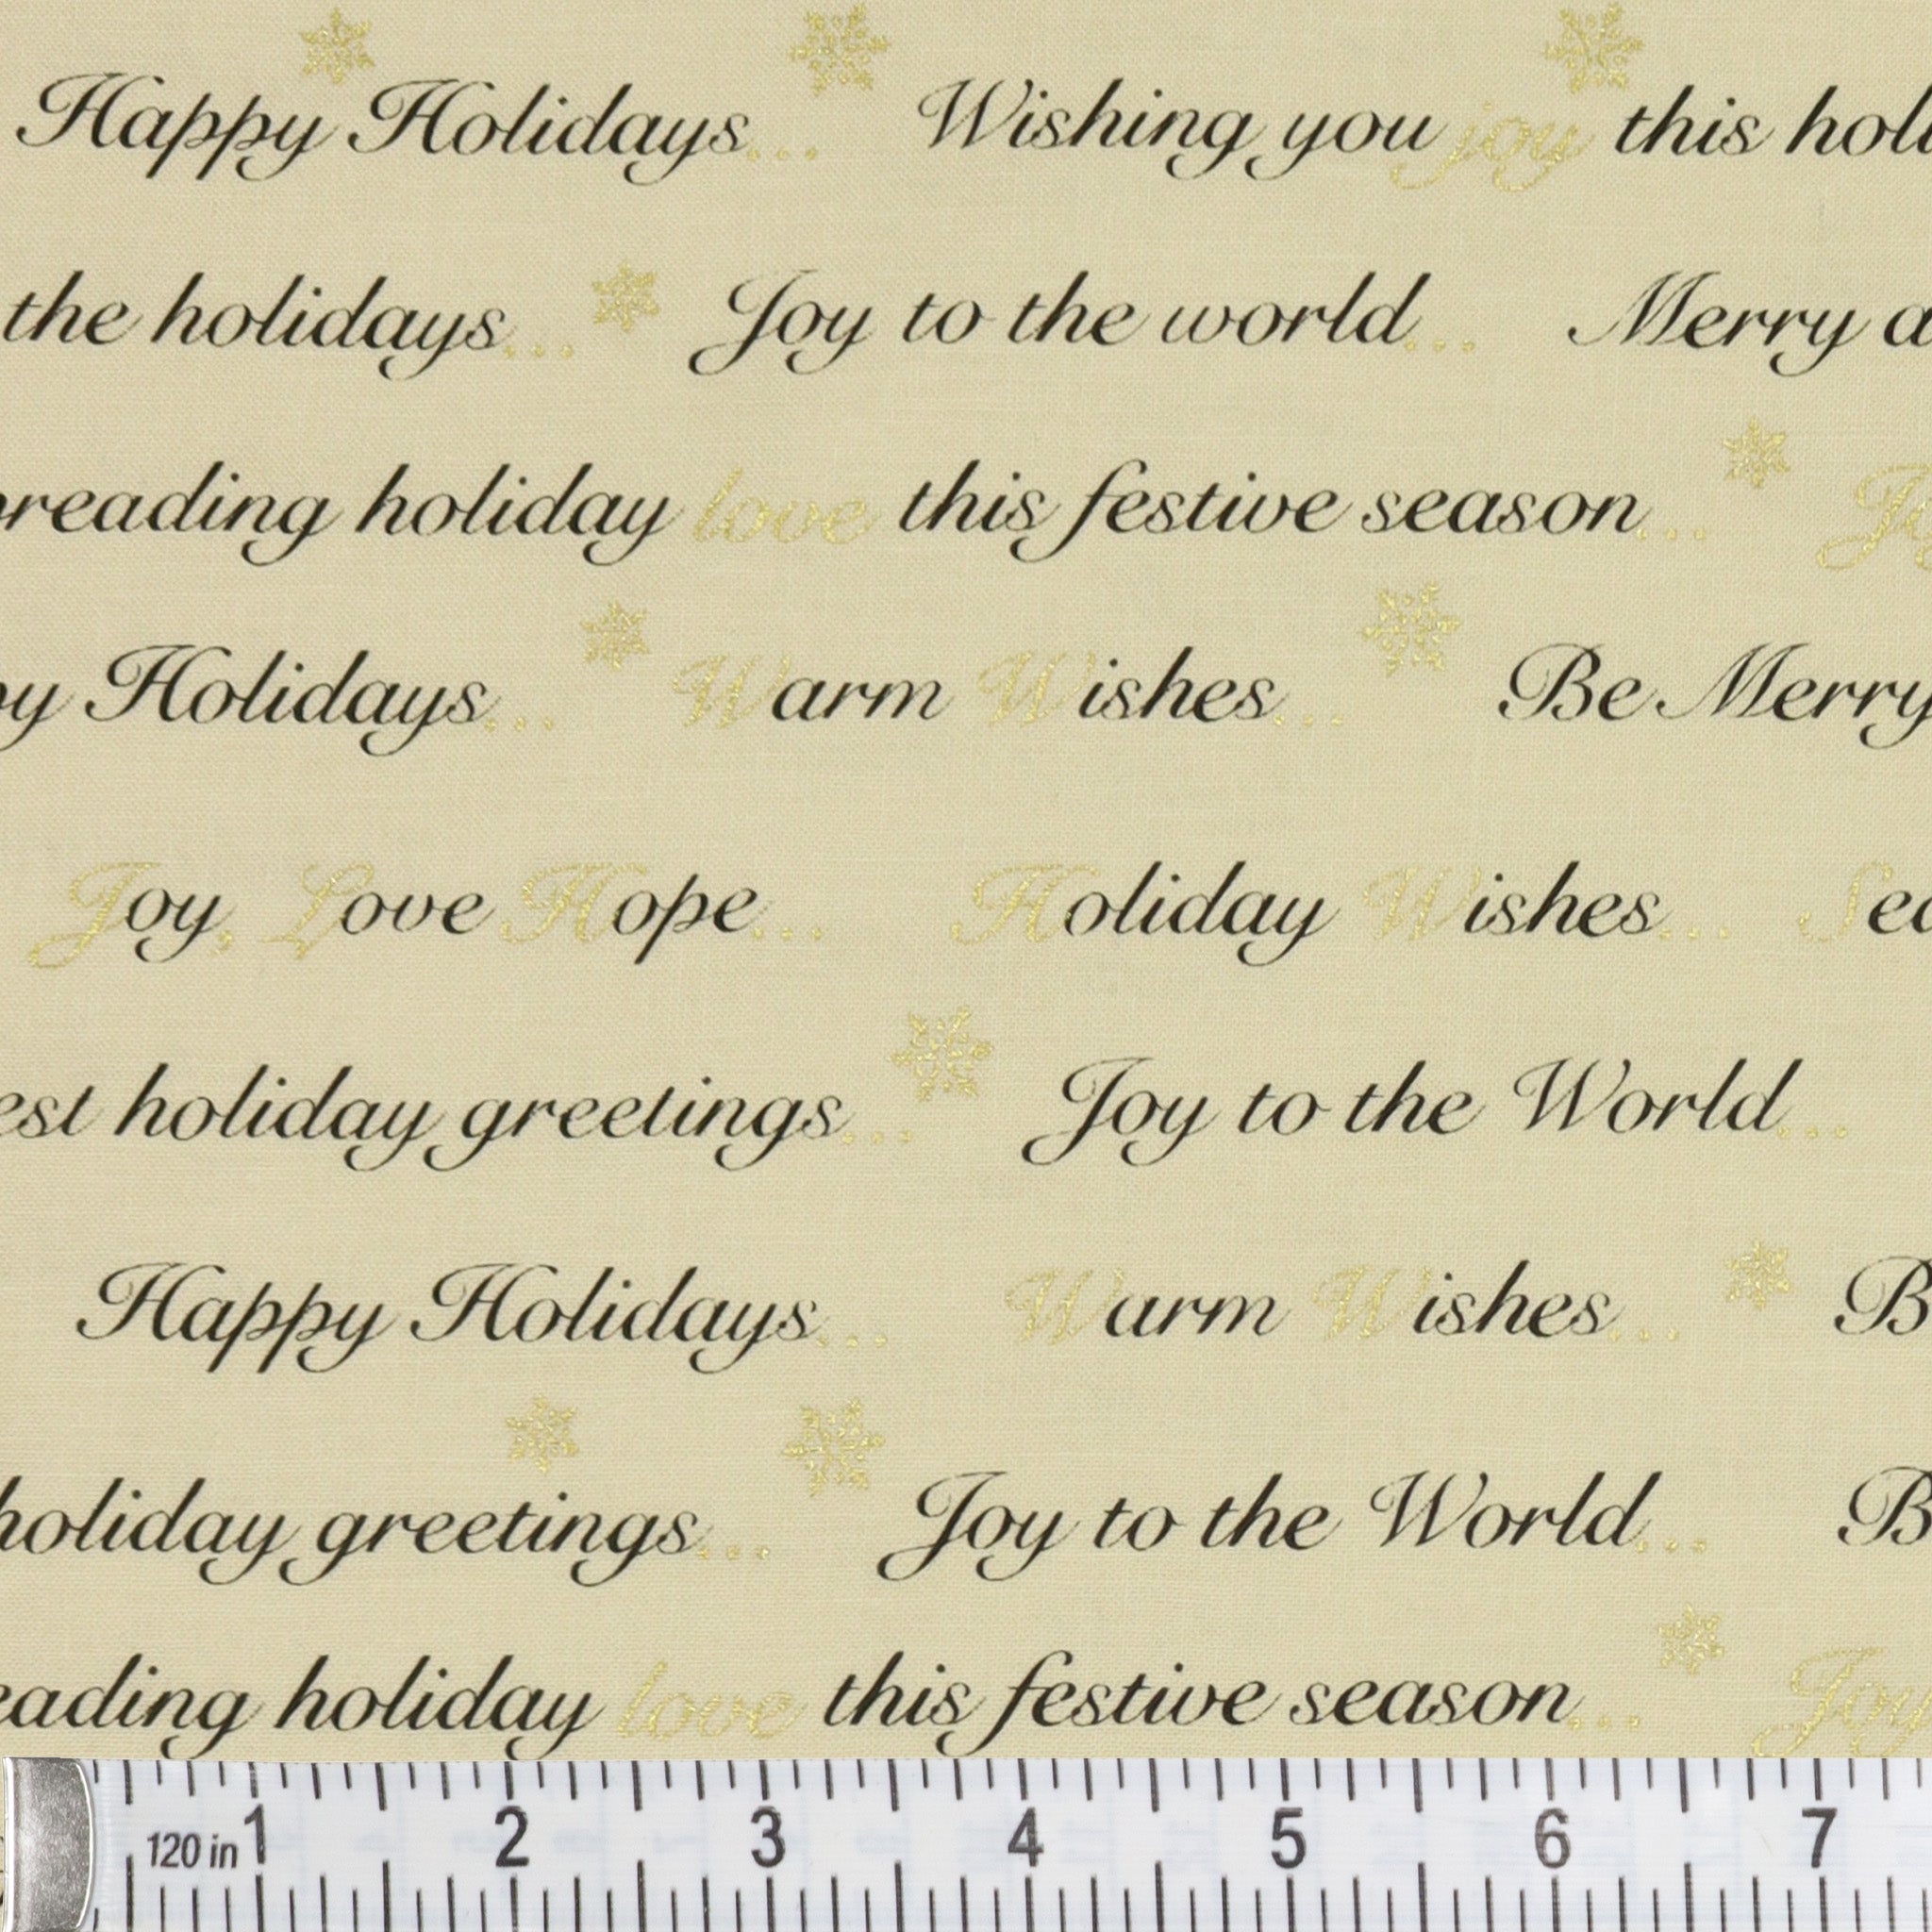 Happy Holidays... Wishing you joy this holi
the holidays... Joy to the world... Merry a
reading holiday love this festive season... Jo
y Holidays... Warm Wishes... Be Merry
Joy, Love Hope... Holiday Wishes... Sea
est holiday greetings... Joy to the World...
Happy Holidays... Warm Wishes... B
holiday greetings... Joy to the World... B
eading holiday love this festive season... Joy
120 in 1 2 3 4 5 6 7